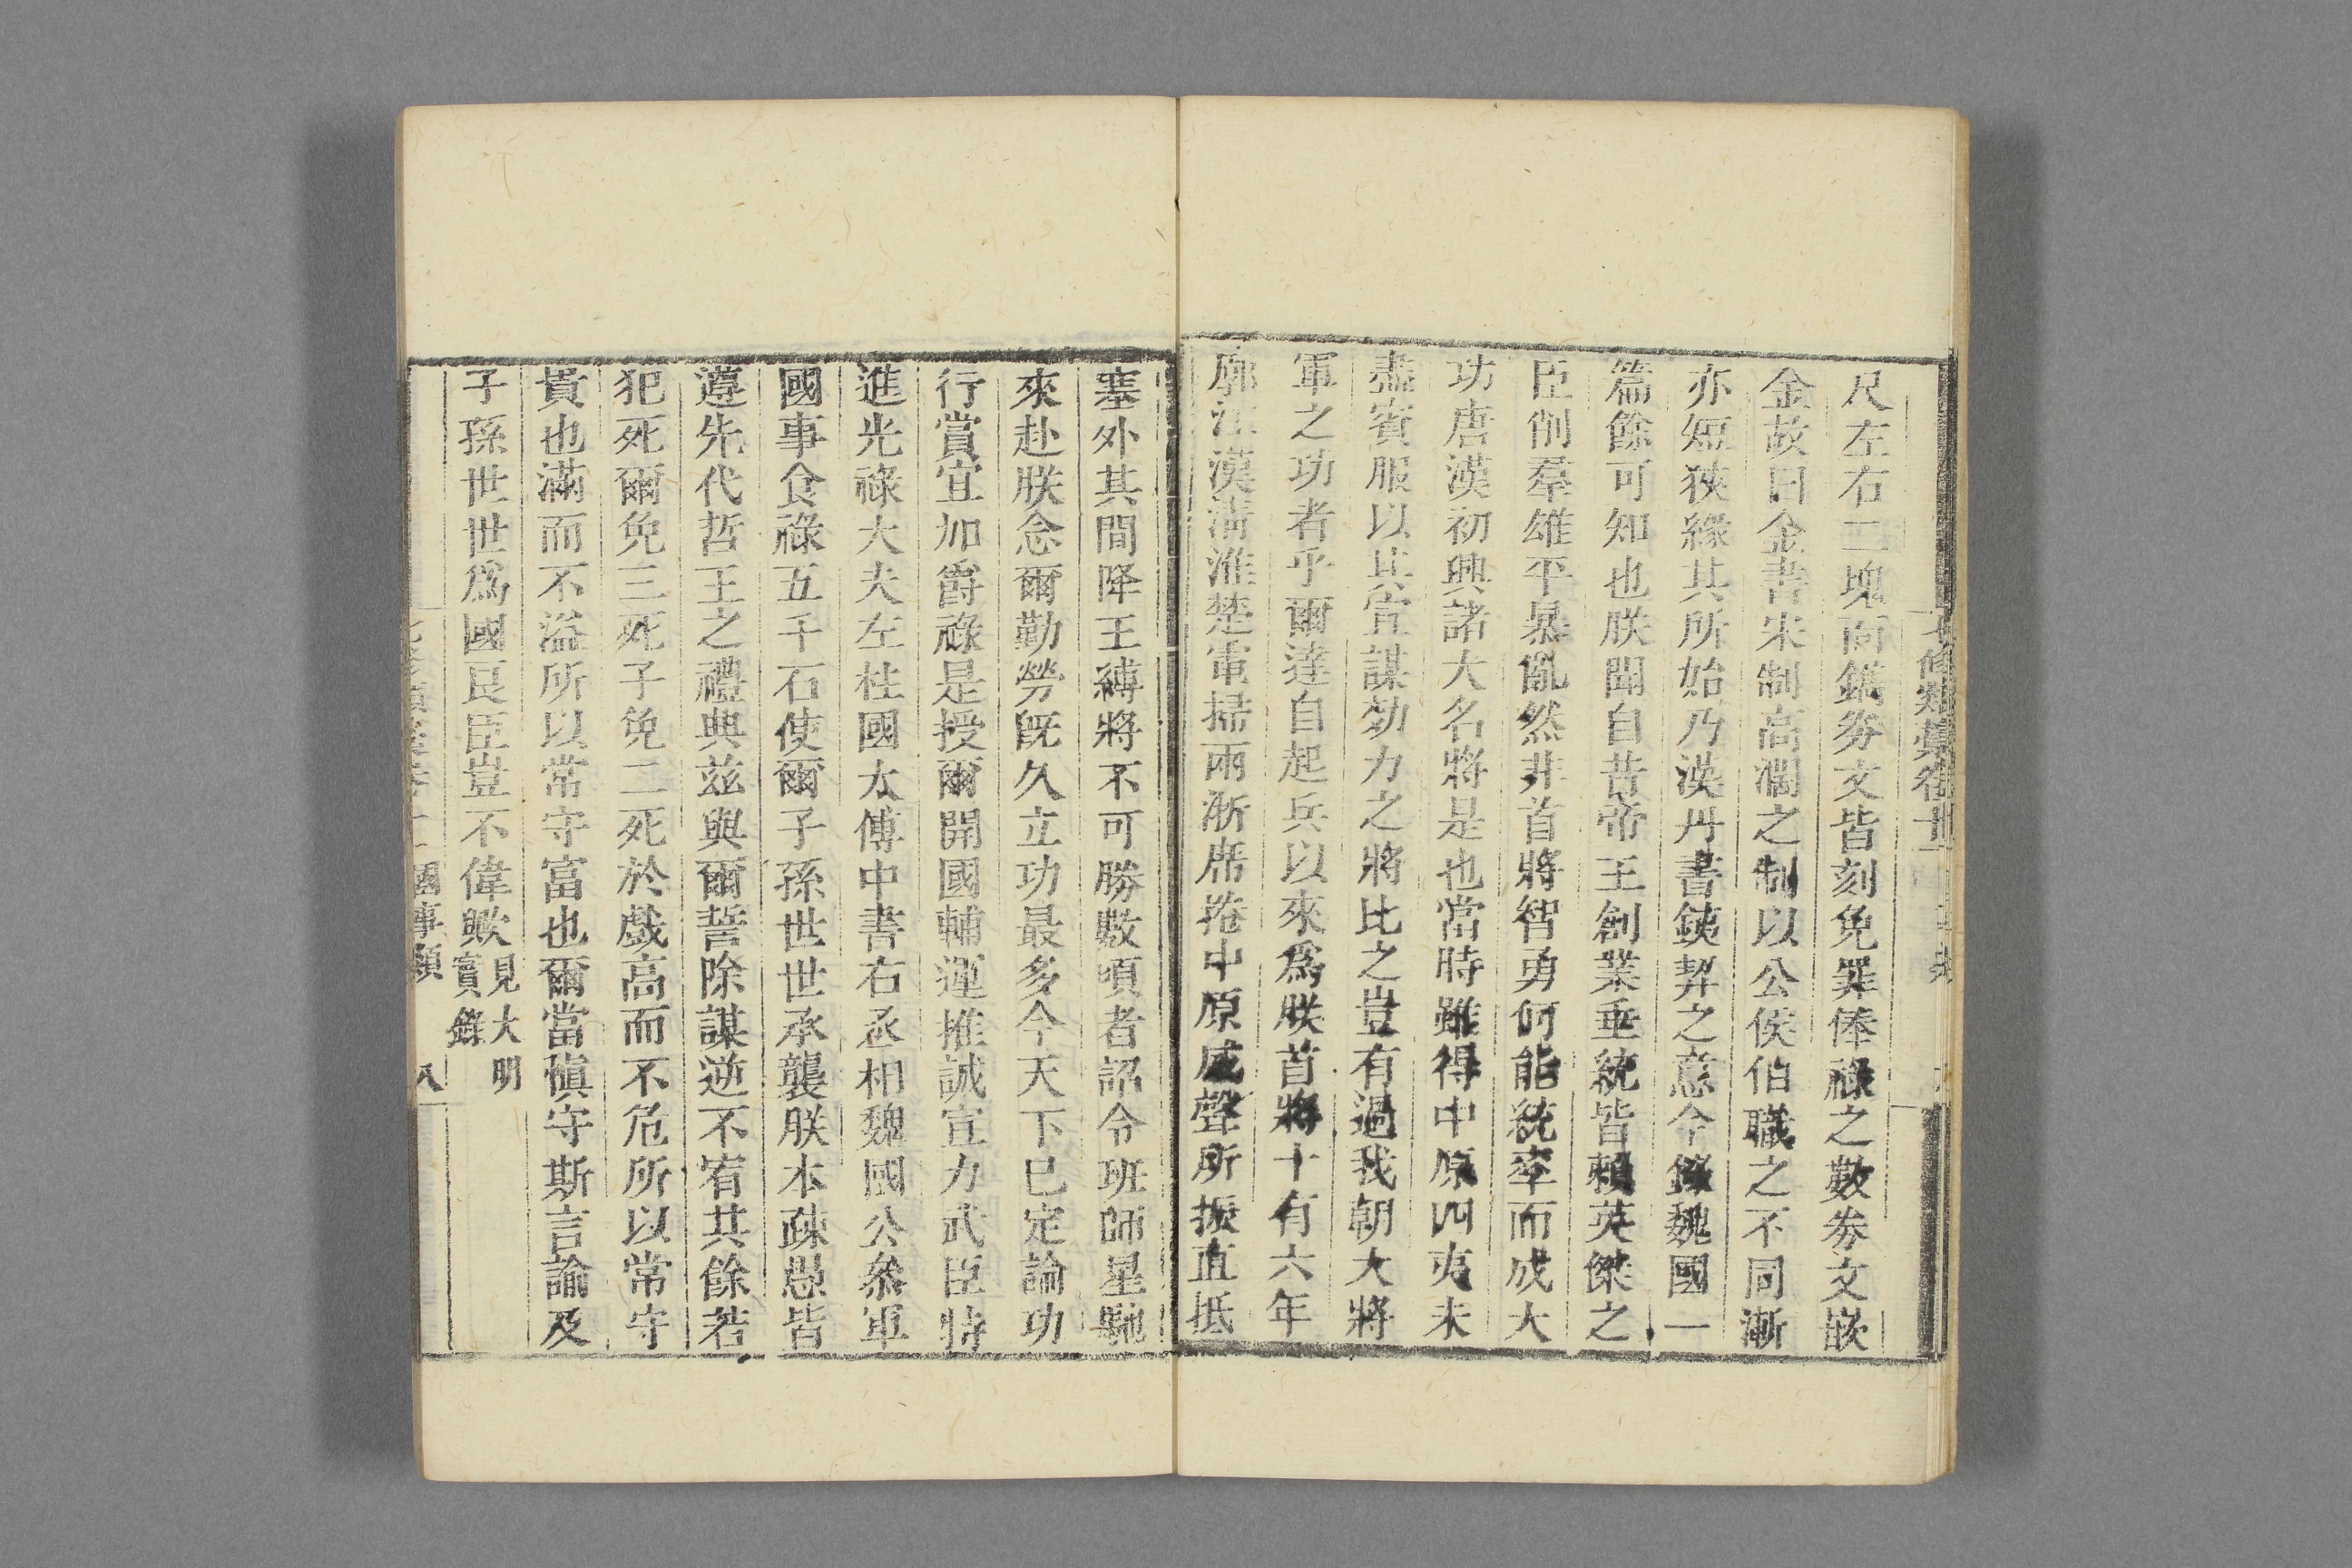 七修類藁卷十一
尺左右二塊面鐫券文皆刻免罪俸祿之數券文嵌
金故曰金書宋制高濶之制以公侯伯職之不同漸
亦短狹緣其所始乃漢丹書鐵契之意今錄魏國一
篇餘可知也朕聞自昔帝王創業垂統皆賴英傑之
臣削羣雄平暴亂然非首將智勇何能統率而成大
功唐漢初興諸大名將是也當時雖得中原四夷未
盡賓服以其宣謀効力之將比之豈有過我朝大將
軍之功者乎爾達自起兵以來爲朕首將十有六年
廓江漢淸淮楚電掃兩浙席捲中原威聲所振直抵
塞外其間降王縛將不可勝數頃者詔令班師星馳
來赴朕念爾勤勞旣久立功最多今天下已定論功
行賞宜加爵祿是授爾開國輔運推誠宣力武臣特
進光祿大夫左柱國太傅中書右丞相魏國公叅軍
國事食祿五千石使爾子孫世世承襲朕本疎愚皆
遵先代哲王之禮典茲與爾誓除謀逆不宥其餘若
犯死爾免三死子免二死於戲高而不危所以常守
貴也滿而不溢所以常守富也爾當愼守斯言諭及
子孫世世爲國良臣豈不偉歟見大明實錄
國事類 八